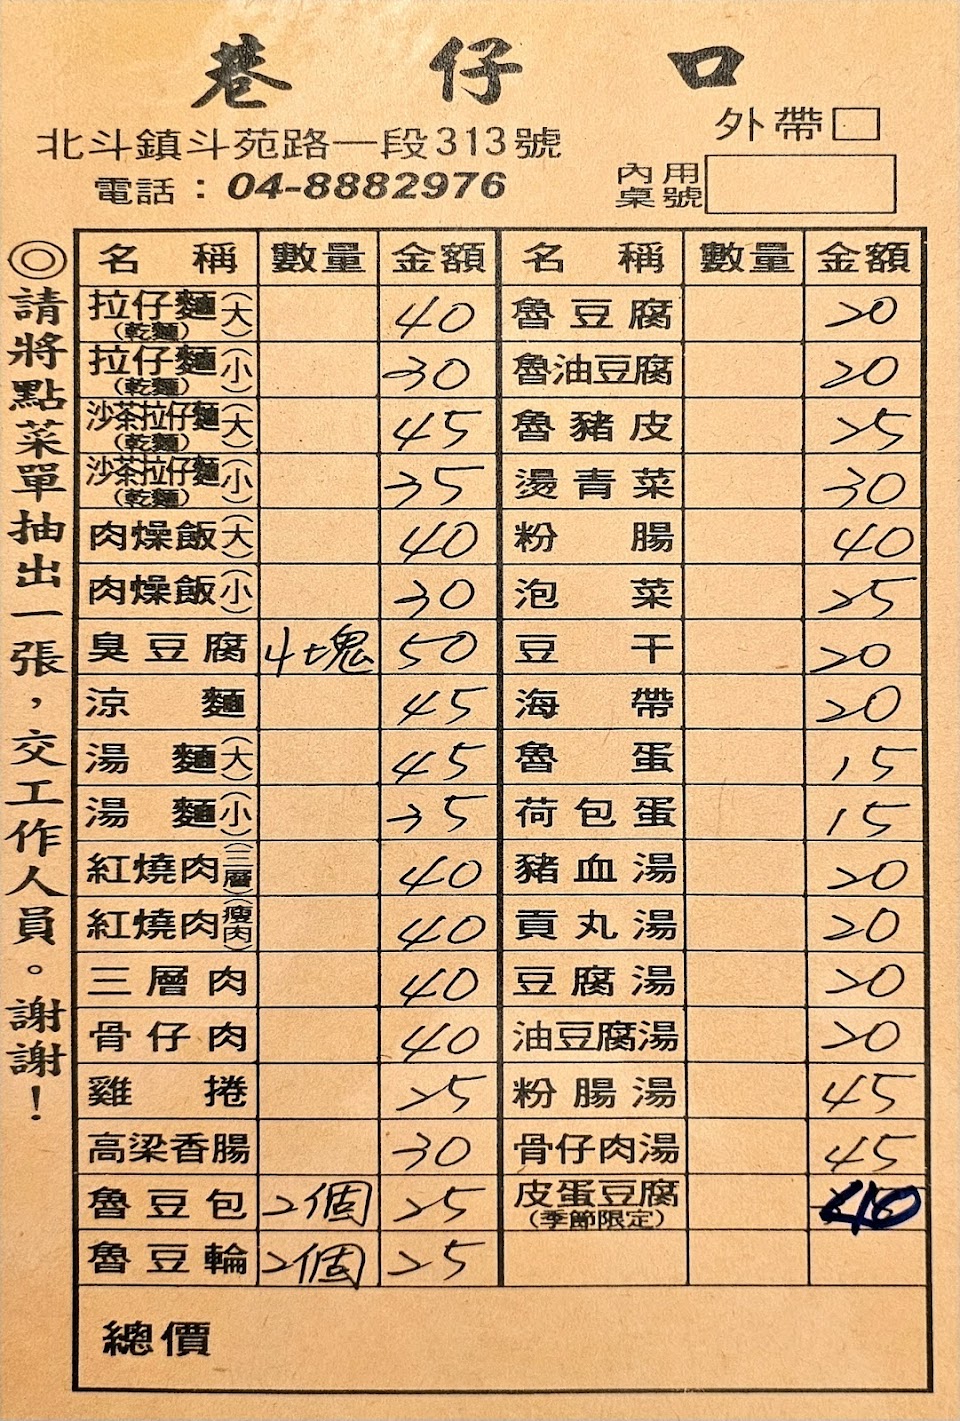 巷仔口
北斗鎮斗苑路一段313號
電話：04-8882976
外帶□
內用桌號
◎請將點菜單抽出一張，交工作人員。謝謝！
名稱 數量 金額 名稱 數量 金額
拉仔麵(乾麵)(大) 40 魯豆腐 20
拉仔麵(乾麵)(小) 30 魯油豆腐 20
沙茶拉仔麵(乾麵)(大) 45 魯豬皮 25
沙茶拉仔麵(乾麵)(小) 35 燙青菜 30
肉燥飯(大) 40 粉腸 40
肉燥飯(小) 30 泡菜 25
臭豆腐 4塊 50 豆干 20
涼麵 45 海帶 20
湯麵(大) 45 魯蛋 15
湯麵(小) 35 荷包蛋 15
紅燒肉(三層) 40 豬血湯 20
紅燒肉(瘦肉) 40 貢丸湯 20
三層肉 40 豆腐湯 20
骨仔肉 40 油豆腐湯 20
雞捲 25 粉腸湯 45
高梁香腸 30 骨仔肉湯 45
魯豆包 2個 25 皮蛋豆腐(季節限定) 40
魯豆輪 2個 25
總價